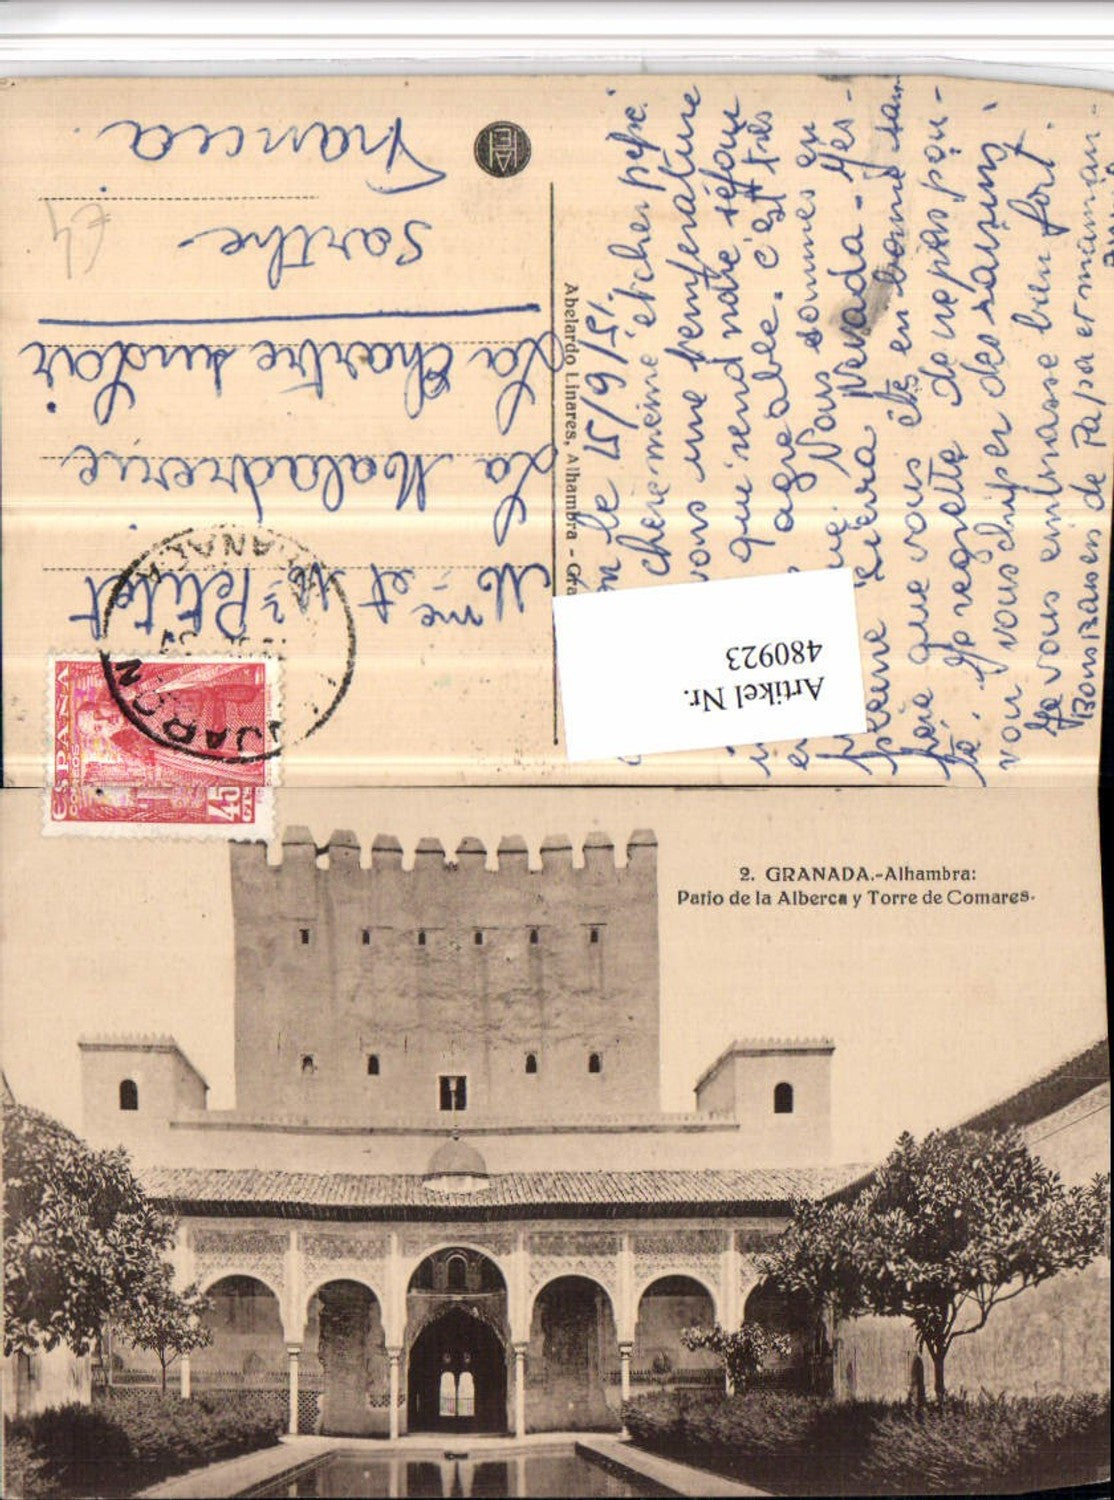 Francia.
Sarthe
La Chartre sur Loir
La Maladrerie
Mme et Mr Petitot
€4
ESPAÑA
CORREOS
45
CTS
Abelardo Linares, Alhambra - Gra
le 15/9/51.
chère mémé et cher pépé
vous une température
qui rend notre séjour
agréable. c'est très
Nous sommes en
pleine Sierra Nevada - J'es-
père que vous êtes en bonne san-
té. Je regrette de ne pas pou-
voir vous chiper des raisins.
Je vous embrasse bien fort.
Bons baisers de Papa et maman
Artikel Nr.
480923
2. GRANADA.-Alhambra:
Patio de la Alberca y Torre de Comares.